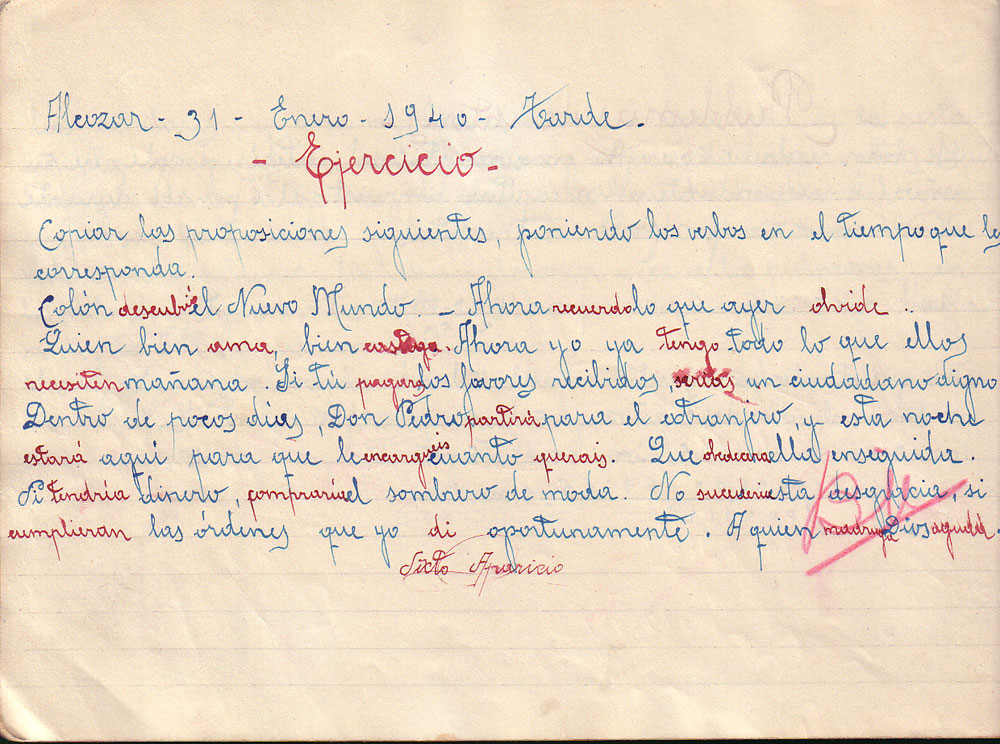 Alcozar - 31 - Enero - 1940 - Tarde.
- Ejercicio -
Copiar las proposiciones siguientes, poniendo los verbos en el tiempo que les
corresponda.
Colón descubrió el Nuevo Mundo - Ahora recuerdo lo que ayer olvide.
Quien bien ama, bien castiga. Ahora yo ya tengo todo lo que ellos
necesiten mañana. Si tú pagaras los favores recibidos, serías un ciudadano digno
Dentro de pocos días, Don Pedro partirá para el extranjero, y esta noche
estará aquí para que le encarguéis cuanto queráis. Que obedezca ella enseguida.
Si tendría dinero, compraría el sombrero de moda. No sucedería esta desgracia, si
cumplieran las órdenes que yo di oportunamente. A quien madruga Dios
Sixto Aparicio